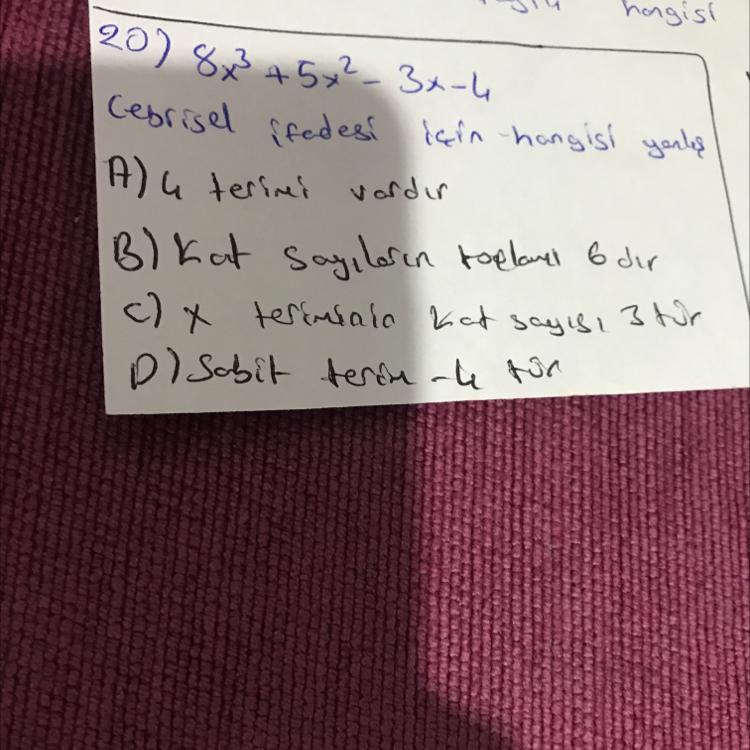 hangisi
20) 8x³ + 5x² - 3x - 4
Cebrisel ifadesi için hangisi yanlış
A) 4 terimi vardır
B) Kat sayıların toplamı 6 dır
C) x teriminin kat sayısı 3 tür
D) Sabit terim -4 tür